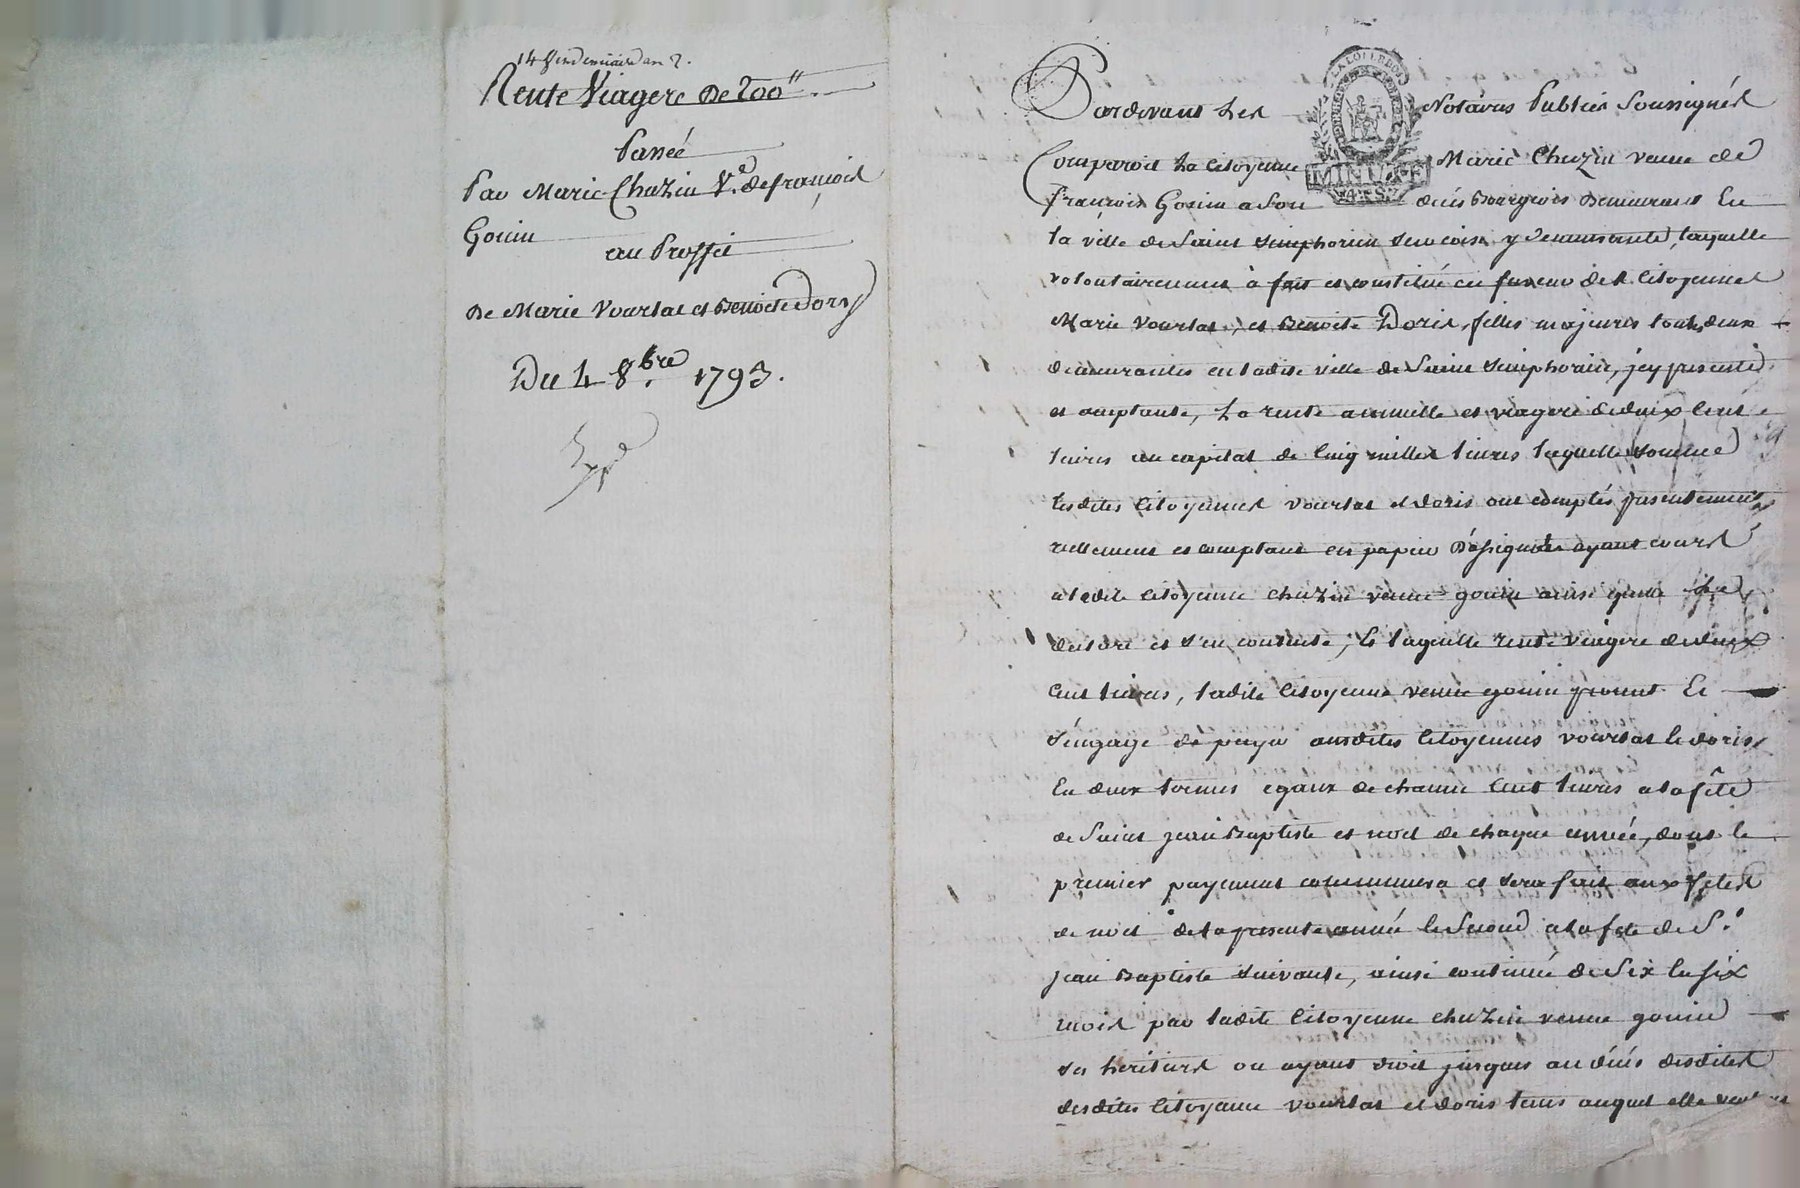 14 Vendemiaire an 2.
Rente Viagere De 200ᵗᵗ
Passée
Par Marie Chuzin Vᵉ. de françois
Gouin
au Proffit
De Marie Vourlat et Benoite Doris
Du 4 8.bre 1793.
Pardevant Les Notaires Publics Soussignés
LA LOI LE ROI
MINUTE
4.S.
Comparoit La Citoyenne Marie Chuzin veuve de
françois Gouin a Son décés Bourgeois Demeurant En
la ville de Saint Simphorien y demeurante, laquelle
volontairement à fait et constitué en faveur des Citoyennes
Marie Vourlat, et Benoite Doris, filles majeures toutes deux
demeurantes en ladite ville de Saint Simphorien, icy presente
et acceptante, La rente annuelle et viagere de deux Cent
livres au capital de Cinq milles livres laquelle somme
lesdites Citoyennes Vourlat et doris ont comptés presentement
réellement et comptant en papier d'assignats ayant cours
a ladite Citoyenne chuzin veuve gouin ainsi quelle le
declare et s'en contente, la laquelle rente viagere de deux
Cent livres, ladite Citoyenne veuve gouin promet Et
s'engage de payer auxdites Citoyennes vourlat et doris
En deux termes egaux de chacun Cent livres a la fête
de Saint jean Baptiste et noel de chaque année, dont le
premier payement commencera et sera fait aux fetes
de noel de la presente année le Second a la fete de St.
jean Baptiste suivante, ainsi continué de Six En Six
mois par ladite Citoyenne chuzin veuve gouin
ses heritiers ou ayant droit jusques au décés desdites
desdites Citoyenne vourlat et doris tems auquel elle